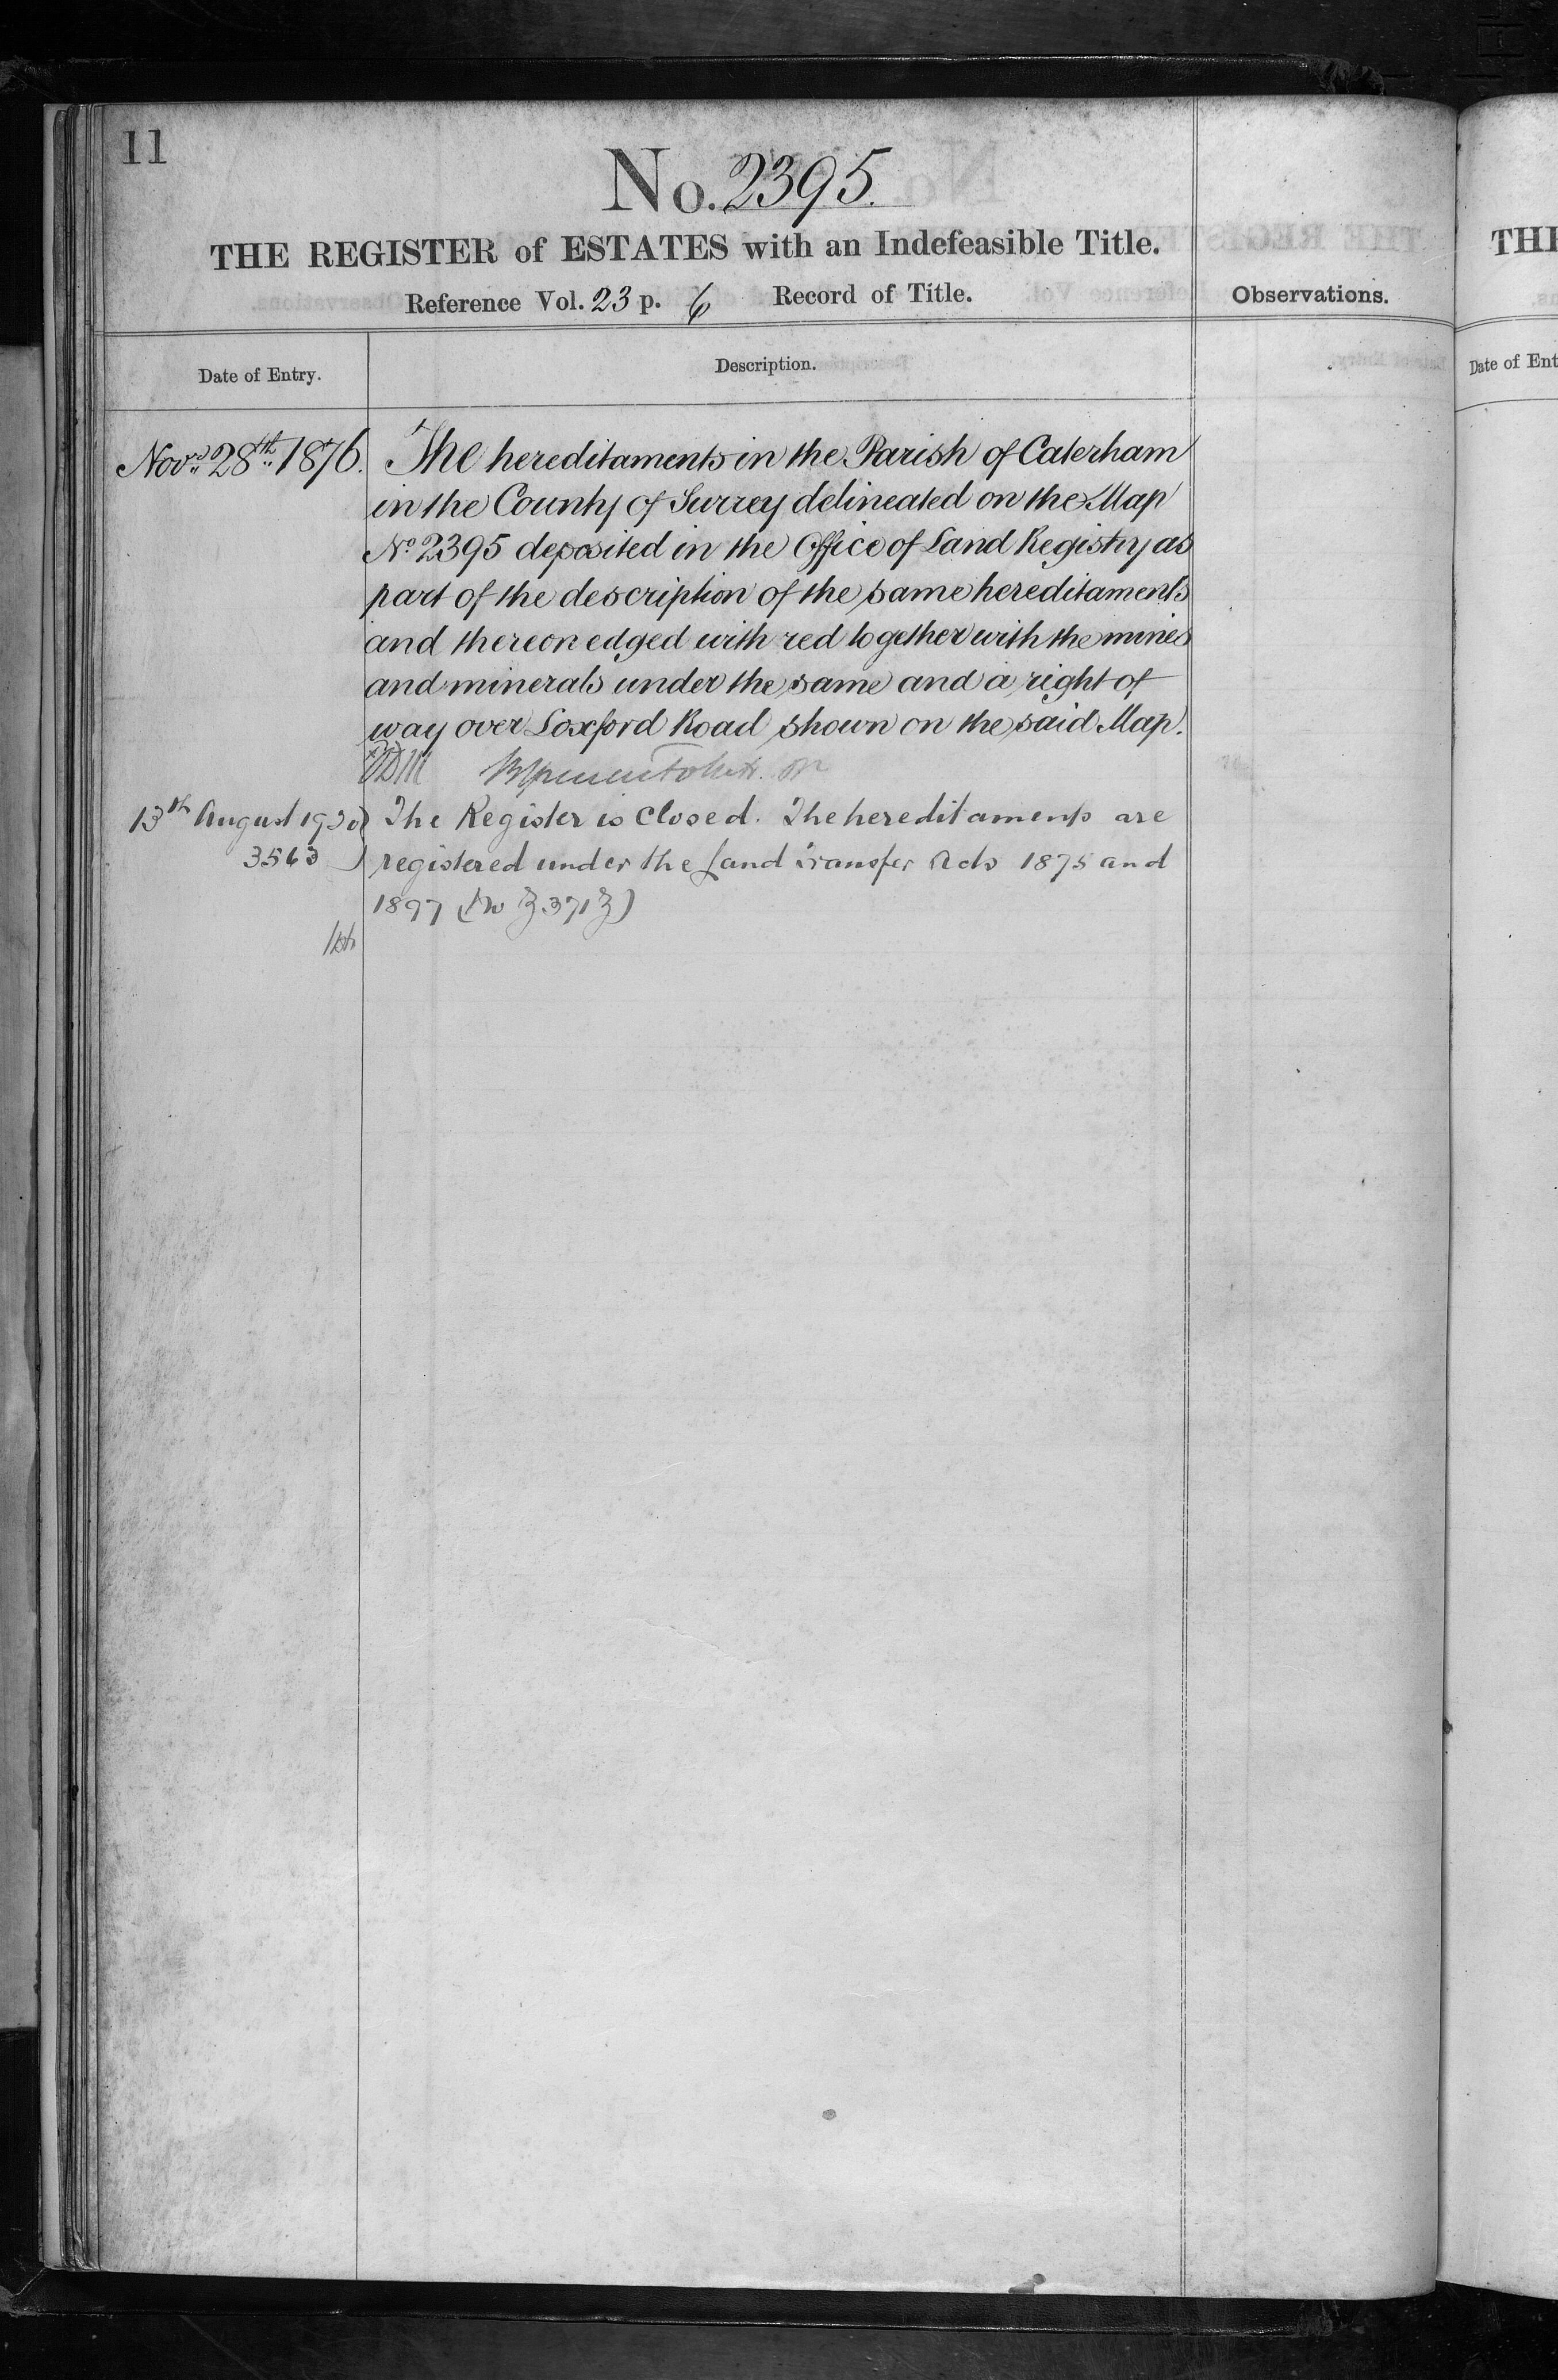 11
No. 2395.
THE REGISTER of ESTATES with an Indefeasible Title.
Reference Vol. 23 p. 6 Record of Title.
Observations.
Date of Entry.
Description.
Novr. 28th. 1876.
The hereditaments in the Parish of Caterham
in the County of Surrey delineated on the Map
No 2395 deposited in the Office of Land Registry as
part of the description of the same hereditaments
and thereon edged with red together with the mines
and minerals under the same and a right of
way over Loxford Road shown on the said Map.
13th August 1920
3563
The Register is closed. The hereditaments are
registered under the Land Transfer Acts 1875 and
1897
THE
Date of Ent